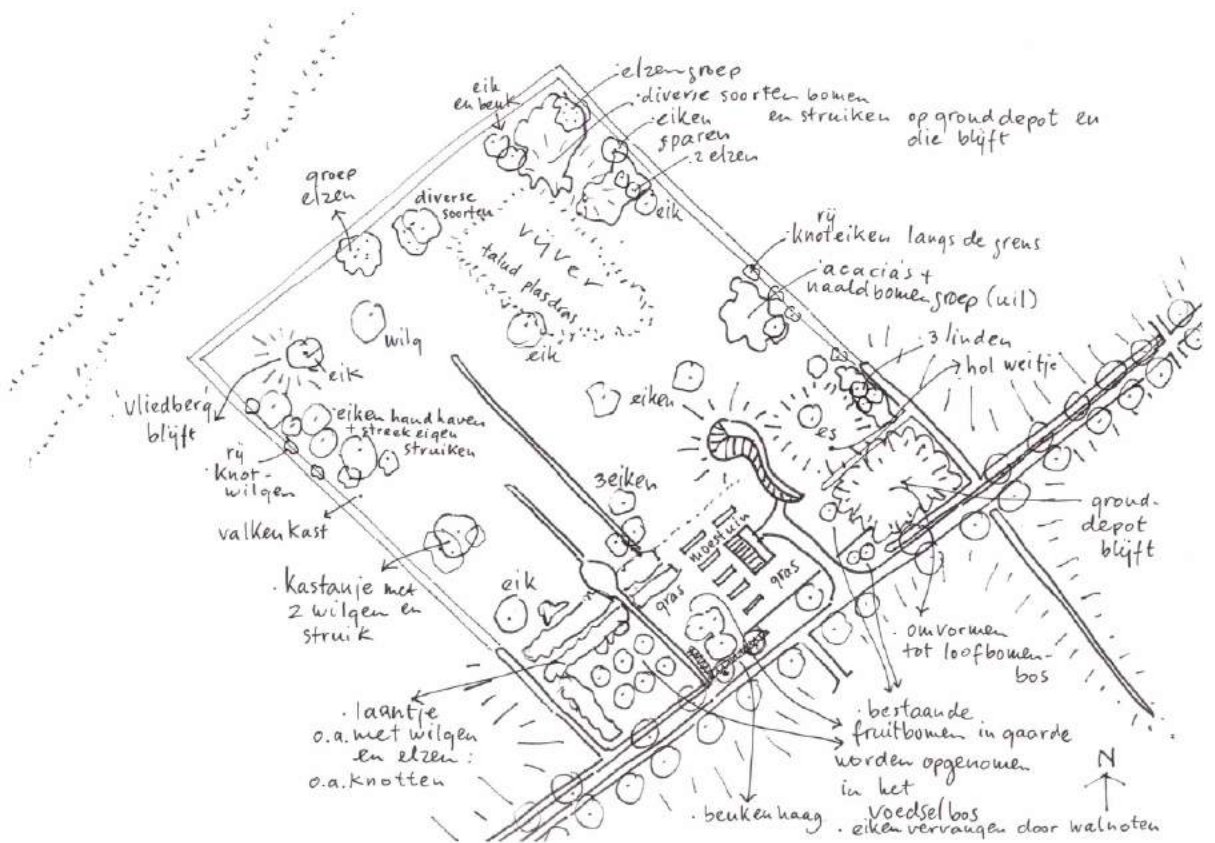 elzengroep
eik
en beuk
diverse soorten bomen
en struiken op gronddepot en
die blijft
eiken
sparen
2 elzen
eik
groep
elzen
diverse
soorten
vijver
talud plasdras
rij
knoteiken langs de grens
acacia's +
naaldbomengroep (uil)
3 linden
hol weitje
wilg
eik
eik
vliedberg
blijft
eiken
es
eiken handhaven
+ streekeigen
struiken
rij
knot-
wilgen
valkenkast
3 eiken
moestuin
gras
gras
grond-
depot
blijft
kastanje met
2 wilgen en
struik
eik
omvormen
tot loofbomen-
bos
. laantje
o.a. met wilgen
en elzen :
o.a. knotten
. bestaande
fruitbomen in gaarde
worden opgenomen
in het
voedselbos
. beukenhaag
. eiken vervangen door walnoten
N